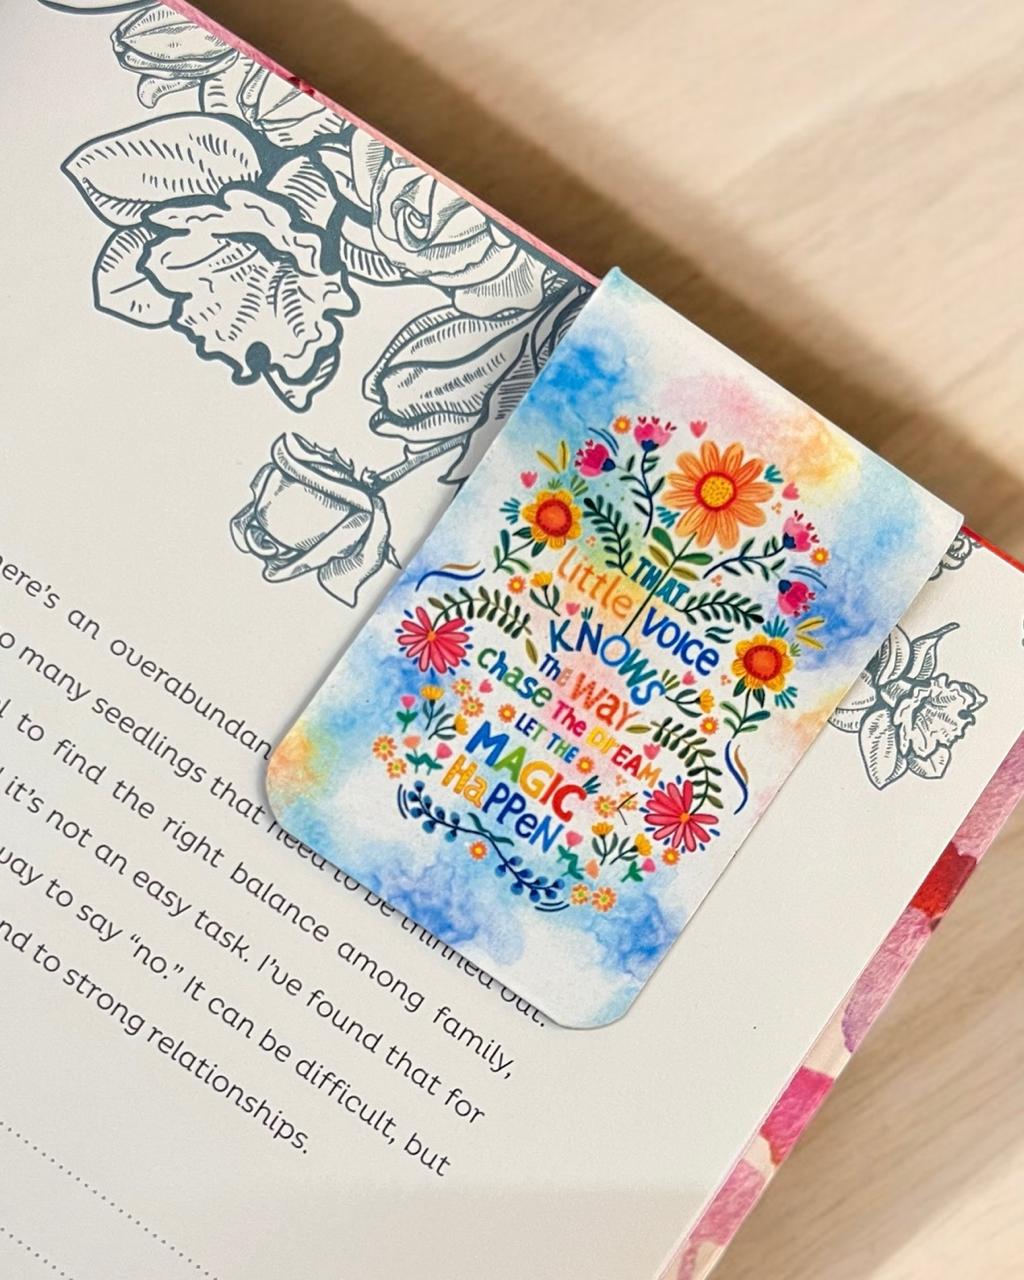 THAT
Little VOICE
KNOWS
THE WAY
chase The DREAM
LET THE
MAGIC
HaPPEN
an overabundan
many seedlings that need to be thinned out.
to find the right balance among family,
it's not an easy task. I've found that for
to say “no.” It can be difficult, but
to strong relationships.